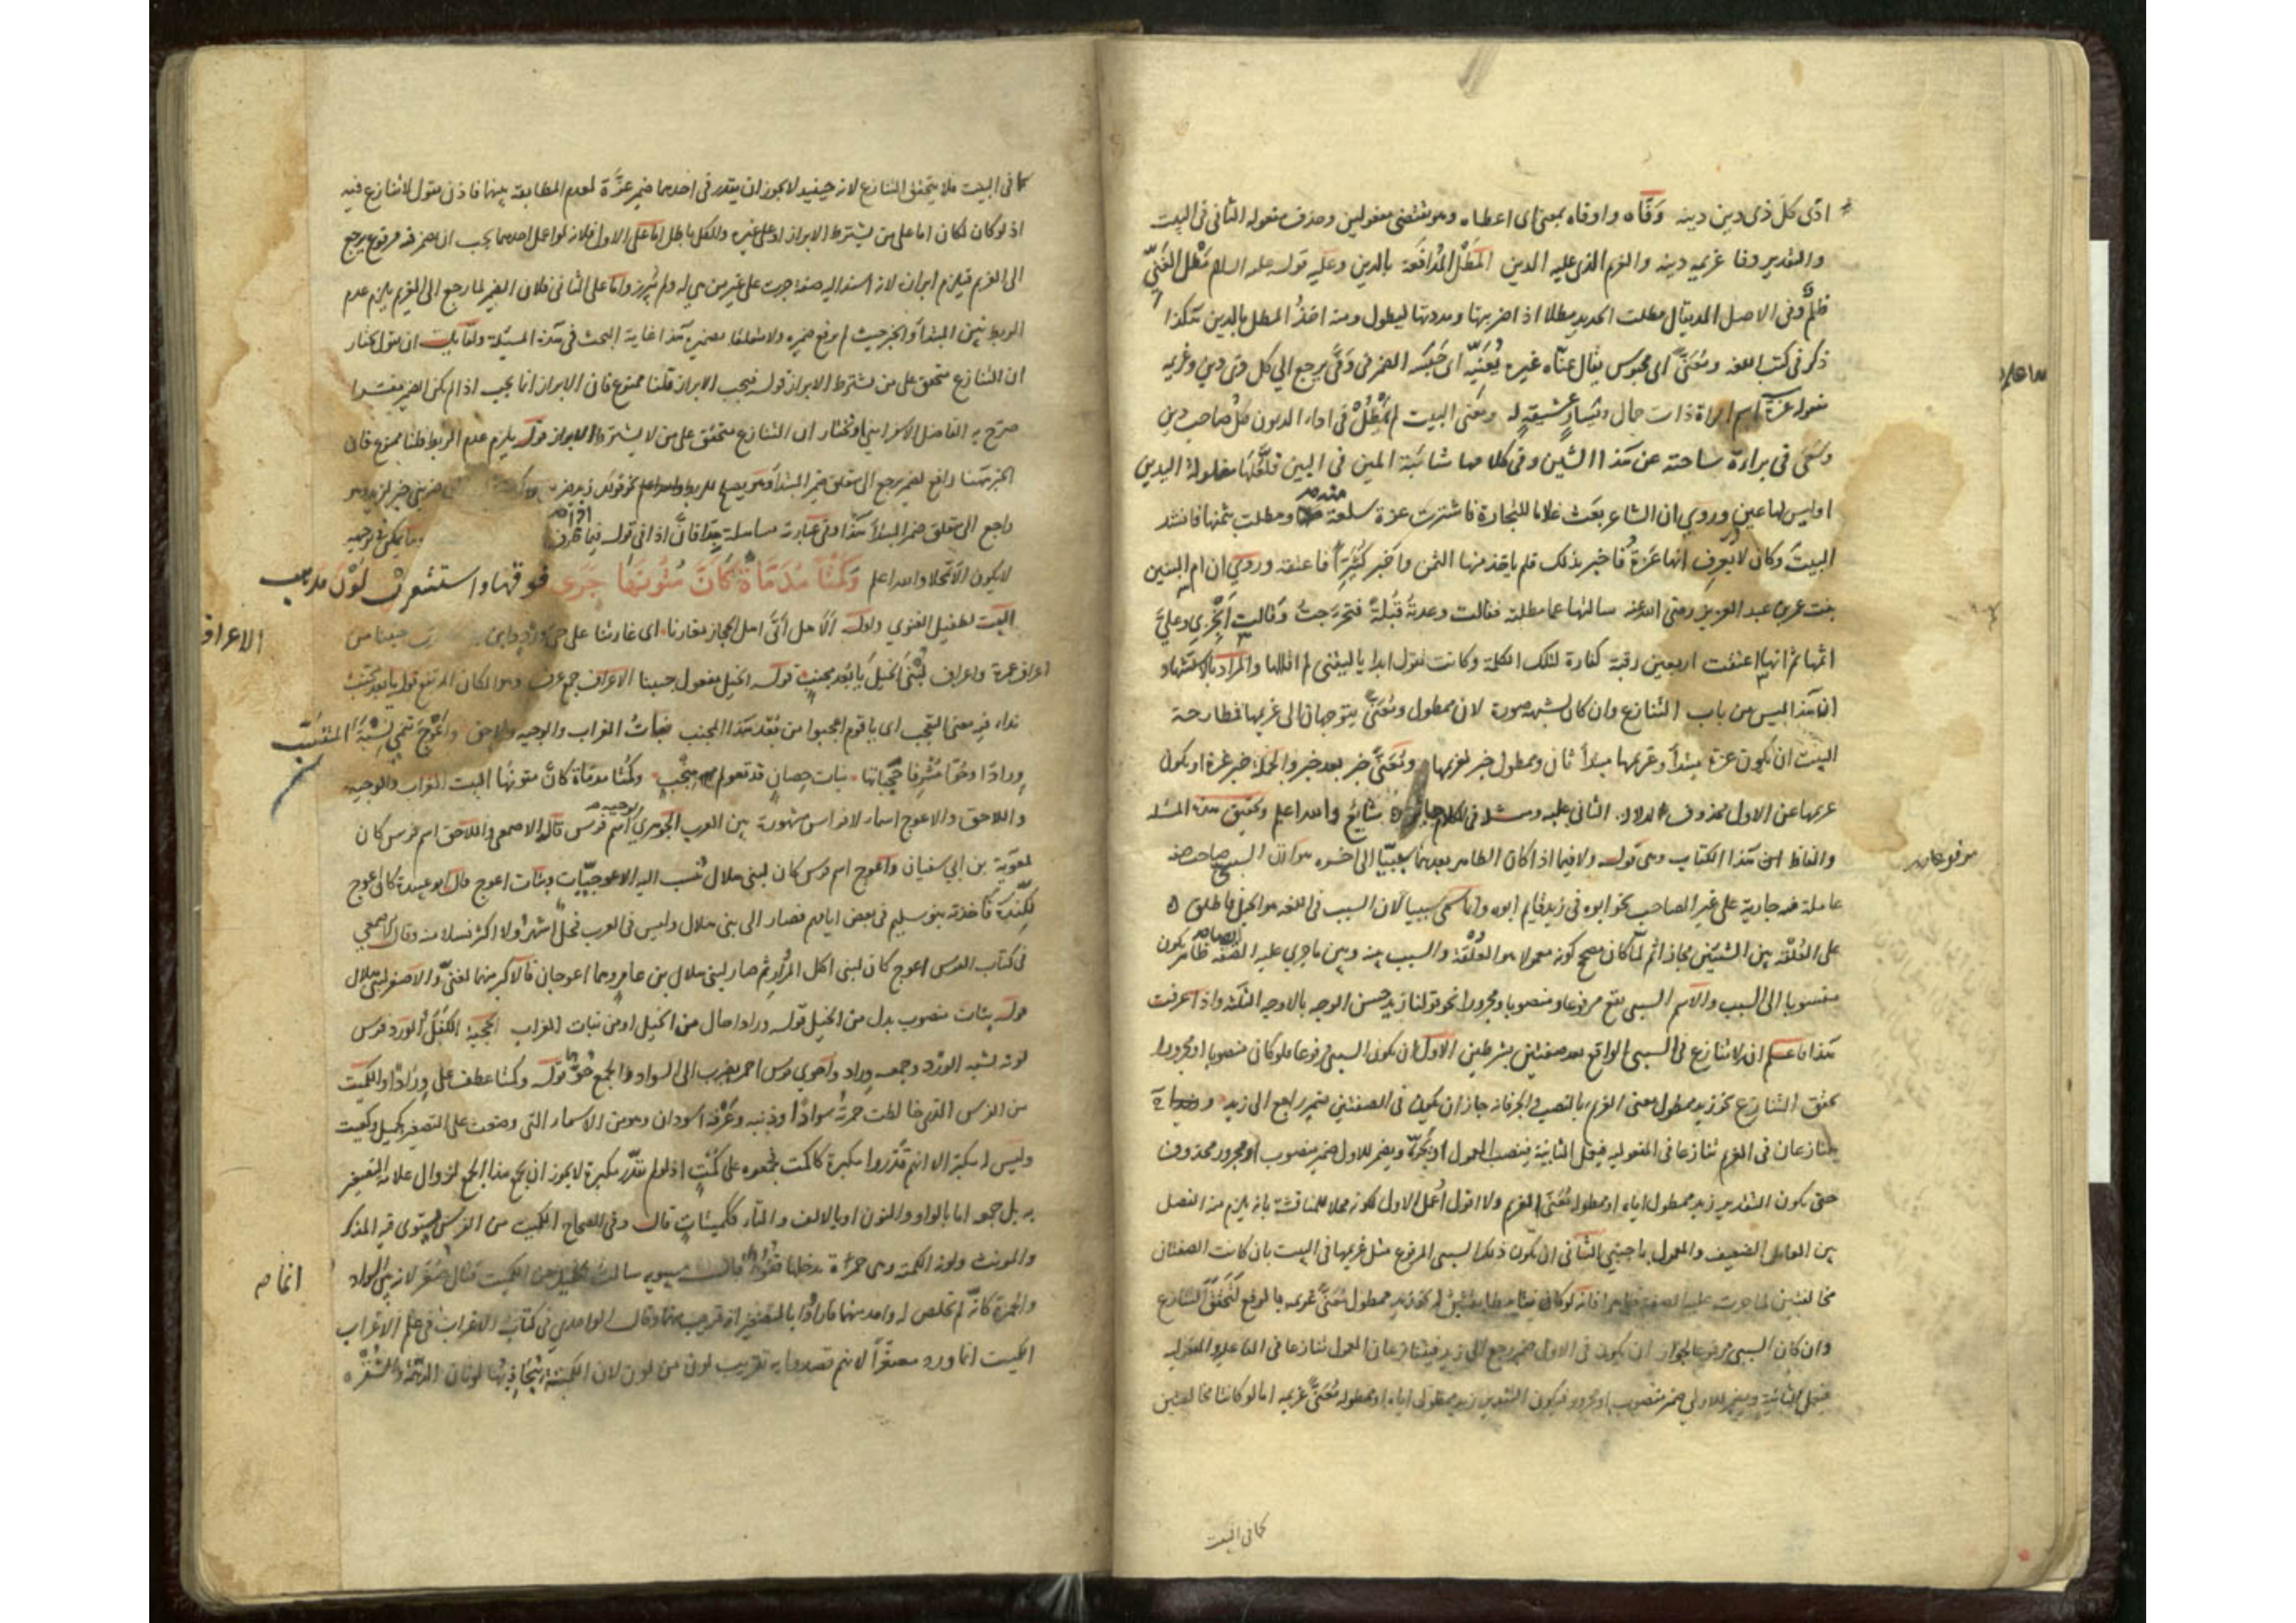 ادى كل ذى دين دينه وفّاه واوفاه بمعنى اى اعطاه وهو يقتضى مفعولين وحذف مفعوله الثانى فى البيت
والتقدير وفا غريمه دينه والغريم الذى عليه الدين المَطْل المُدافَعة بالدين وعليه قوله عليه السلام مَطْل الغَنِيّ
ظلمٌ وفى الاصل المد يقال مطلت الحديد مطلا اذا ضربتها ومددتها ليطول ومنه اخذ المطل بالدين هكذا
ذكر فى كتب اللغه ومُعَنَّى اى محبوس يقال عنّاه غيره يُعَنّيه اى حَبَسَه الضمر فى وَفَّى يرجع الى كل ذى دين وغريمه
مفعوله عزة اسم امراة ذات حال ويسار عشيقة له ومعنى البيت لم يمطل فى اداء الديون كل صاحب دين
وسعى فى براءة ساحته عن هذا الشين وفى كلامها شائبة المين فى البين فلعلها مغلولة اليدين
اوليس لها عين وروى ان الشاعر بعَث غلاما للتجارة فاشترت عزة سلعة منه ومطلت بثمنها فانشد
البيتَ وكان لا يعرف انها عَزة فاخبر بذلك فلم ياخذ منها الثمن واخبر كثيّرا فاعتقه وروى ان ام البنين
بنت عمر بن عبد العزيز رضى الله عنه سالتها عما مطلته فقالت وعدتُه قُبلةً فتحرّجتُ وقالت أنجزى وعليَّ
اثمها ثم انها اعتقت اربعين رقبة كفارة لتلك الكلمة وكانت تقول ابدا يا ليتنى لم اقلها والمراد بالاستشهاد
ان هذا ليس من باب التنازع وان كان يشبهه صورة لان ممطول ومُعَنَّى يتوجهان الى غريمها فطارحة
البيت ان يكون عزة مبتدأ وغريمها مبتدأ ثان وممطول خبر لغريمها ومُعَنَّى خبر بعد خبر والجملة خبر عزة او يكون
غريمها عن الاول محذوف لدلالة الثانى عليه ومثله فى الكلام شايع والله اعلم وتحقيق هذه المسئلة
والفاظ هذا الكتاب وهى قوله ولا فيما اذا كان الظاهر بعدهما سببيّا الى اخره هو ان السبب صاحب صفة
عاملة فيه جارية على غير الصاحب نحو ابوه فى زيد قايم ابوه وانما سمى سببيا لان السبب فى اللغه هو الحبل فاطلق
على العُلْقة بين الشيئين مجازا ثم لما كان مصحح كونه معمولا هو العُلْقة والسبب بينه وبين ما جرى عليه الصفة ظاهر يكون
منسوبا الى السبب والاسم السببى يقع مرفوعا ومنصوبا ومجرورا نحو قولنا زيد حسن الوجه بالاوجه الثلثة واذا عرفت
هذا فاعلم ان لا تنازع فى السببى الواقع بعد صفتين بشرطين الاول ان يكون السببى مرفوعا فلو كان منصوبا او مجرورا
تحقق التنازع نحو زيد ممطول معنى الغريم بالنصب والجر فانه جاز ان يكون فى الصفتين ضمير راجع الى زيد
يتنازعان فى الغريم تنازعا فى المفعولية فيعمل الثانية فينصب المعمول او يجرّه ويضمر للاول ضمير منصوب او مجرور محذوف
حتى يكون التقدير زيد ممطول اياه او ممطوله مُعَنَّى الغريم ولا اقول أعمل الاول لكونه محلا للمناقشة بانه يلزم منه الفصل
بين العامل الضعيف والمعمول باجنبى الثانى ان يكون ذلك السببى المرفوع مثل غريمها فى البيت بان كانت الصفتان
مخالفتين لما جرت عليه الصفة فانه لو كان زيد ممطول مُعَنَّى غريمه بالرفع لتحقق التنازع
وان كان السببى مرفوعا لجواز ان يكون فى الاول ضمير يرجع الى زيد فيتنازعان المعمول تنازعا فى الفاعلية والمفعولية
فيعمل الثانية ويضمر للاولى ضمير منصوب او مجرور فيكون التقدير زيد ممطول اياه او ممطوله مُعَنَّى غريمه اما لو كانتا مخالفتين
كما فى البيت
كما فى البيت فلا يتحقق التنازع لانه حينئيذ لا يجوز ان يقدر فى احدهما ضمير عزّة لعدم المطابقة بينهما فاذن نقول لا تنازع فيه
اذ لو كان لكان اما على من يشترط الابراز او على غيره والكل باطل اما على الاول فلانه لو اعمل احدهما يجب ان الضمر فيه مرفوع يرجع
الى الغريم فيلزم ابرازه لانه اسند اليه صفة جرت على غير من هى له ولم يُبرز واما على الثانى فلان الضمير لما رجع الى الغريم يلزم عدم
الربط بين المبتدأ والخبر حيث لم يرفع ضميره ولا متعلقا بضميره هذا غاية البحث فى هذه المسئلة ولقائل ان يقول نختار
ان التنازع متحقق على من يشترط الابراز قوله فيجب الابراز قلنا ممنوع فان الابراز انما يجب اذا لم يكن الضمير مفسّرا
صرّح به الفاضل الاسفراينى او نختار ان التنازع متحقق على من لا يشترط الابراز قوله يلزم عدم الربط قلنا ممنوع فان
الخبر ههنا رافع لضمير يرجع الى متعلق ضمير المبتدأ وهو يصلح للربط والله اعلم نحو قولك زيد
راجع الى متعلق ضمير المبتدأ هذا وفى عبارته مساهلة جدا فان اذا فى قوله فيما
لا يكون الا محلا والله اعلم وكُمْتًا مُدَمَّاةً كَأَنَّ مُتُونَهَا جَرَى فوقها واستشعرت لَوْنَ مذهب
البيت لطفيل الغنوى واوله ألا هل أتى اهل الحجاز مغارنا اى غارتنا على حى ورد وابن جنبنا من
اعراف غمرة واعراف لُبْنَى الخيلَ يا بُعد مجنب قوله الخيل مفعول جنبنا الاعراف جمع عرف وهو المكان المرتفع قوله يا بعد مجنب
نداء فيه معنى التعجب اى يا قوم اعجبوا من بُعْد هذا المجنب بناتُ الغراب والوجيه ولاحق واعوج تنمى نِسْبَةَ المتنسّب
ورادًا وحُوّا مُشْرِفا حَجَباتها بنات حصان قد تعولم منجب وكمتا مدماة كانّ متونها البيت الغراب والوجيه
واللاحق والاعوج اسماء لافراس مشهورة بين العرب الجوهرى الوجيه اسم فرس قاله الاصمعى واللاحق اسم فرس كان
لمعوية بن ابى سفيان واعوج اسم فرس كان لبنى هلال تُنسب اليه الاعوجيّات وبنات اعوج قال ابو عبيدة كان اعوج
لكندة فاخذته بنو سليم فى بعض ايامهم فصار الى بنى هلال وليس فى العرب فحل اشهر ولا اكثر نسلا منه وقال الاصمعى
فى كتاب الفرس اعوج كان لبنى اكل المُرار ثم صار لبنى هلال بن عامر وهما اعوجان فالاكبر منهما لغنىّ والاصغر لبنى هلال
قوله بنات منصوب بدل من الخيل قوله ورادا حال من الخيل او من بنات الغراب الحجبة الكَفَل الورد فرس
لونه يشبه الورْد وجمعه وراد واحوى فرس احمر يضرب الى السواد والجمع حُوّ قوله وكمتا عطف على ورادًا والكميت
من الفرس الذى خالطت حمرته سوادًا وذنبه وعُرْفه اسودان وهو من الاسماء التى وضعت على التصغير كجميل وكعيت
وليس له مكبّر الا انهم قدّروا مكبره كاكمت فجمعوه على كُمْتٍ اذ لو لم يقدّر مكبره لا يجوز ان يجمع هذا الجمع لزوال علامة التصغير
به بل جمعه اما بالواو والنون او بالالف والتاء ككميتاتٍ قال وفى الصحاح الكميت من الفرس يستوى فيه المذكر
والمونث ولونه الكمتة وهى حمرة يدخلها قنوء قال سيبويه سالت الخليل عن الكميت فقال صُغّر لانه بين السواد
والحمرة كانّه لم تخلص له واحد منهما فارادوا بالتصغير انه قريب منهما وقال الواحدى فى كتاب الاغراب فى علم الاعراب
الكميت انما ورد مصغّرا لانهم قصدوا به تقريب لون من لون لان الكمتة يتجاذبها لونان الدُّهْمَة والشُّقْرة
الاعراف